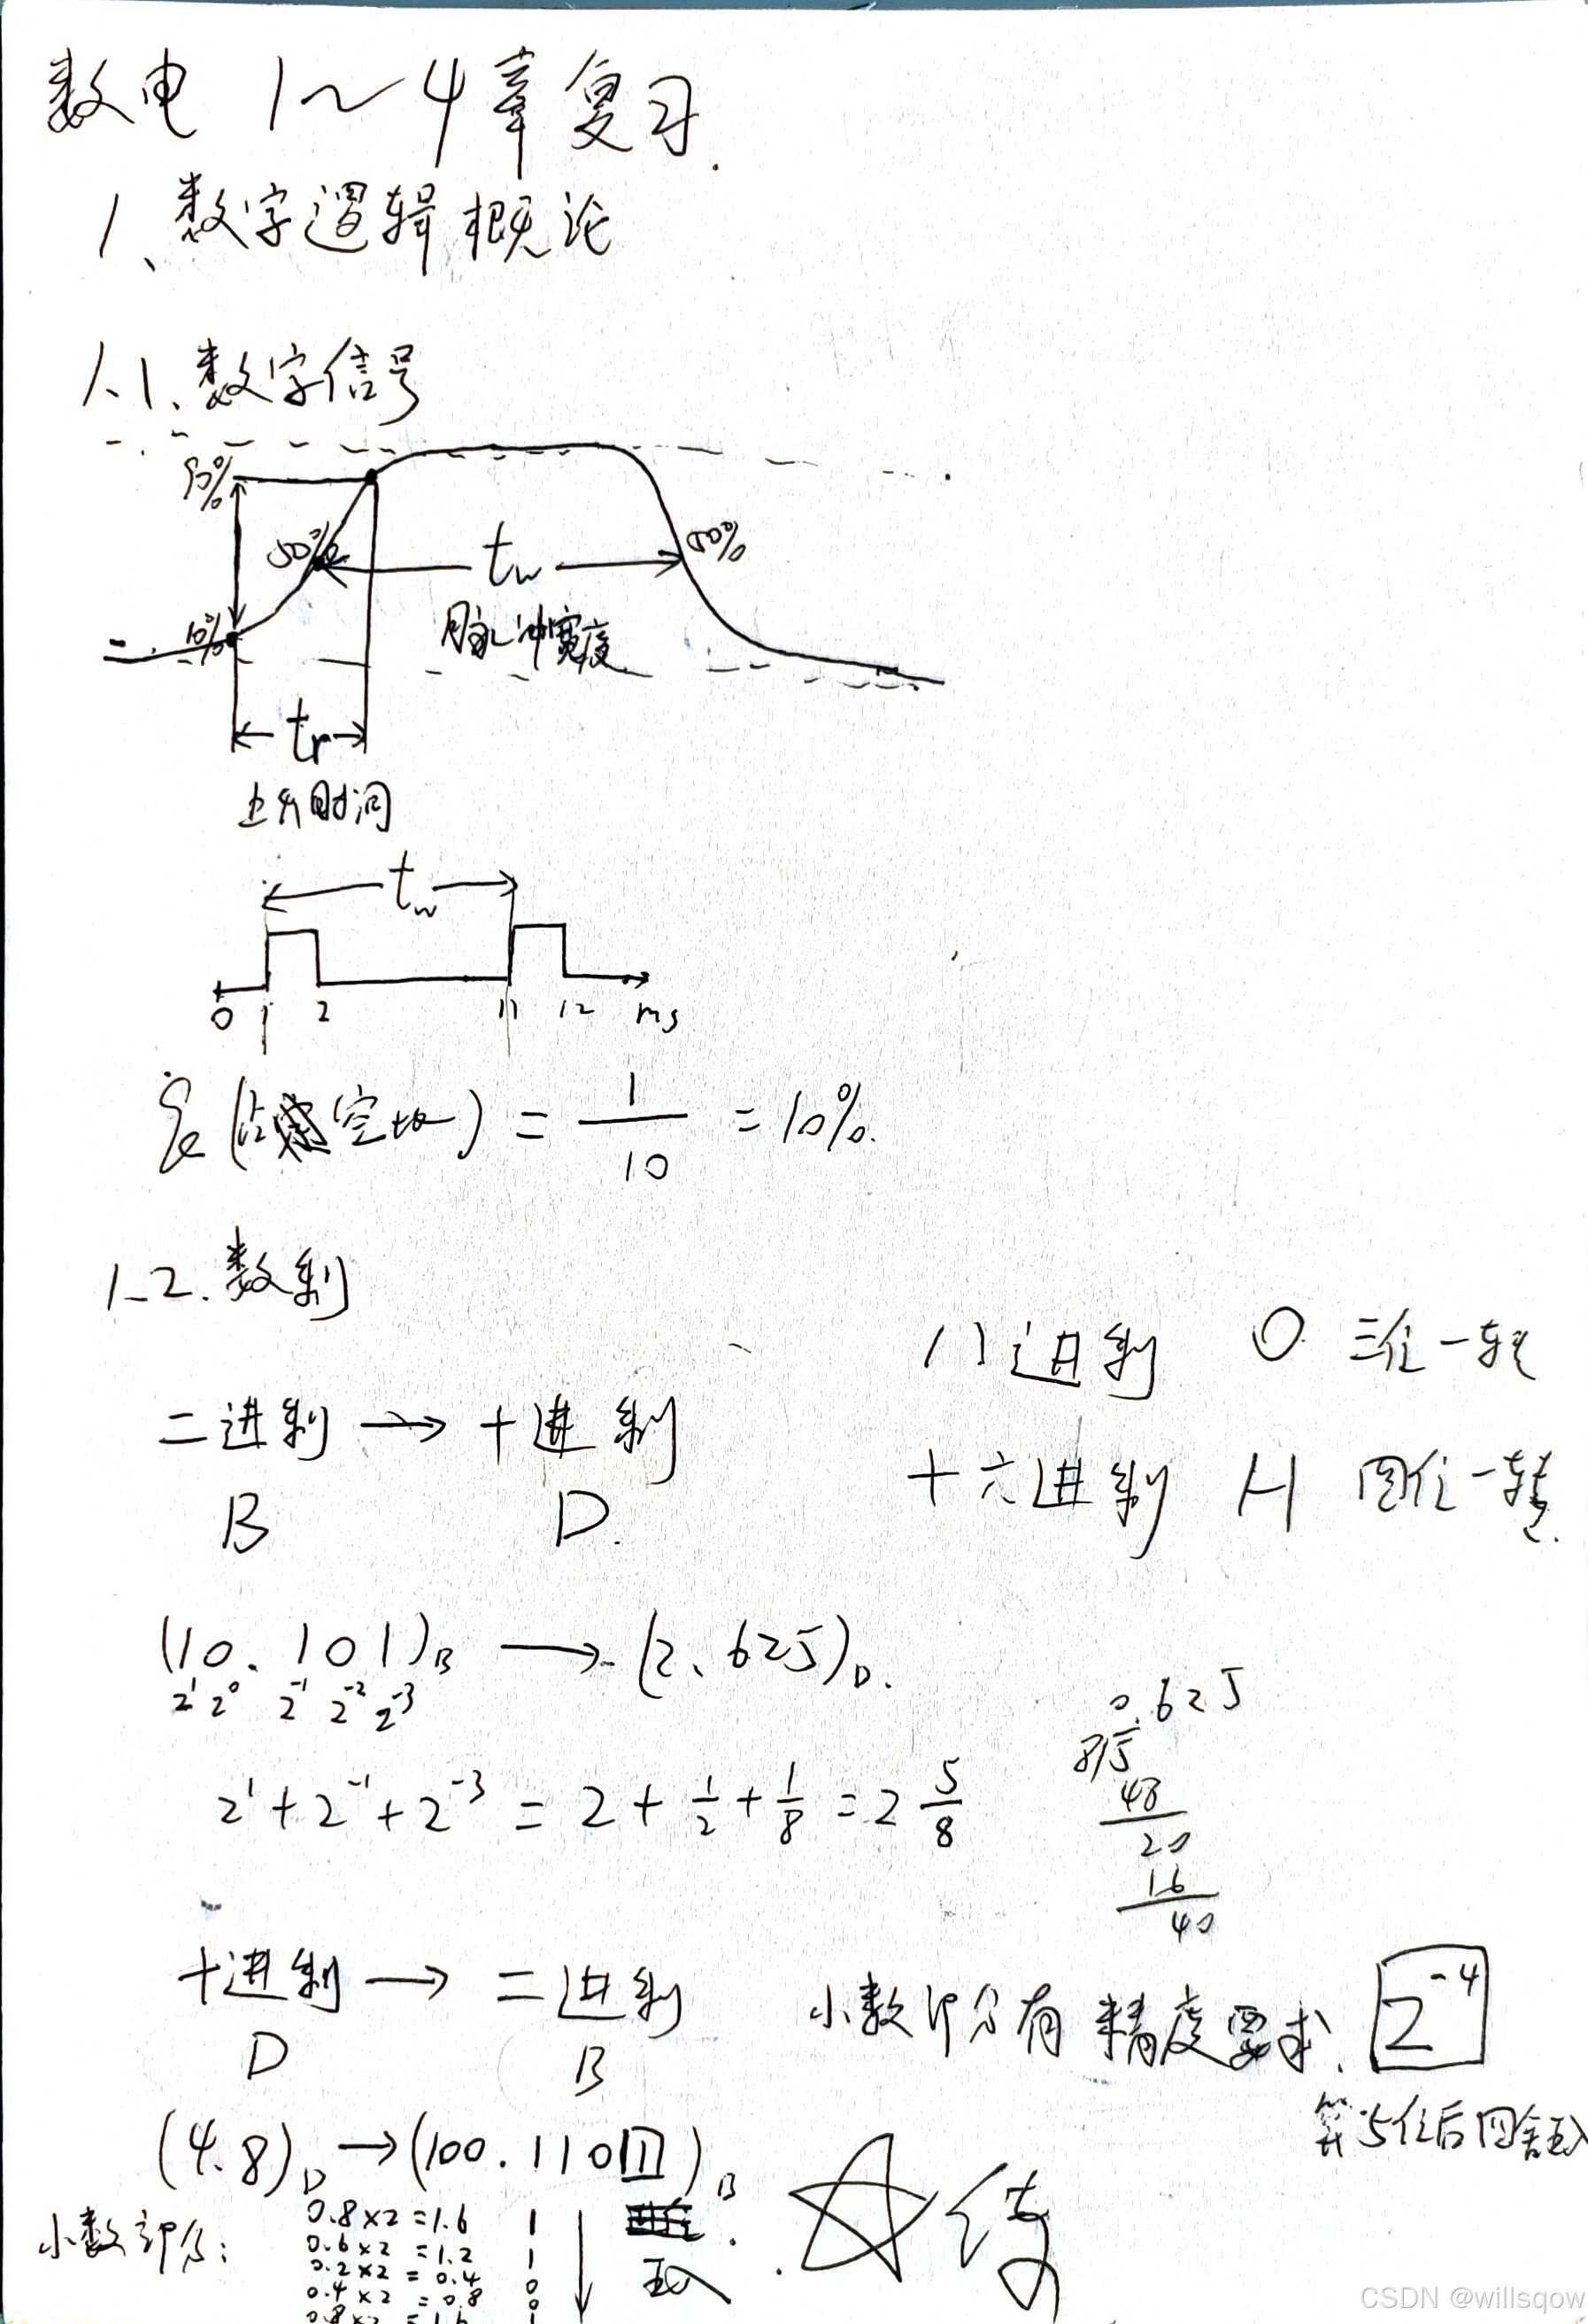 数电 1~4章复习.
1、数字逻辑概论
1.1、数字信号
90%
50% tw 50%
10% 脉冲宽度
tr
上升时间
tw
0 1 2 11 12 ms
q(占空比) = 1/10 = 10%.
1.2.数制
八进制 O. 三位一转
二进制 → 十进制
十六进制 H 四位一转.
B D.
(10.101)B → (2.625)D.
2¹ 2⁰ 2⁻¹ 2⁻² 2⁻³
0.625
8/5
2¹+2⁻¹+2⁻³ = 2+1/2+1/8 = 2 5/8
48
20
16
40
十进制 → 二进制 小数部分有精度要求. 2⁻⁴
D B
算5位后四舍五入
(4.8)D → (100.1101)B.
小数部分: 0.8×2=1.6 1
0.6×2=1.2 1
0.2×2=0.4 0
0.4×2=0.8 0
0.8×2=1.6 1
五入
CSDN @willsqow